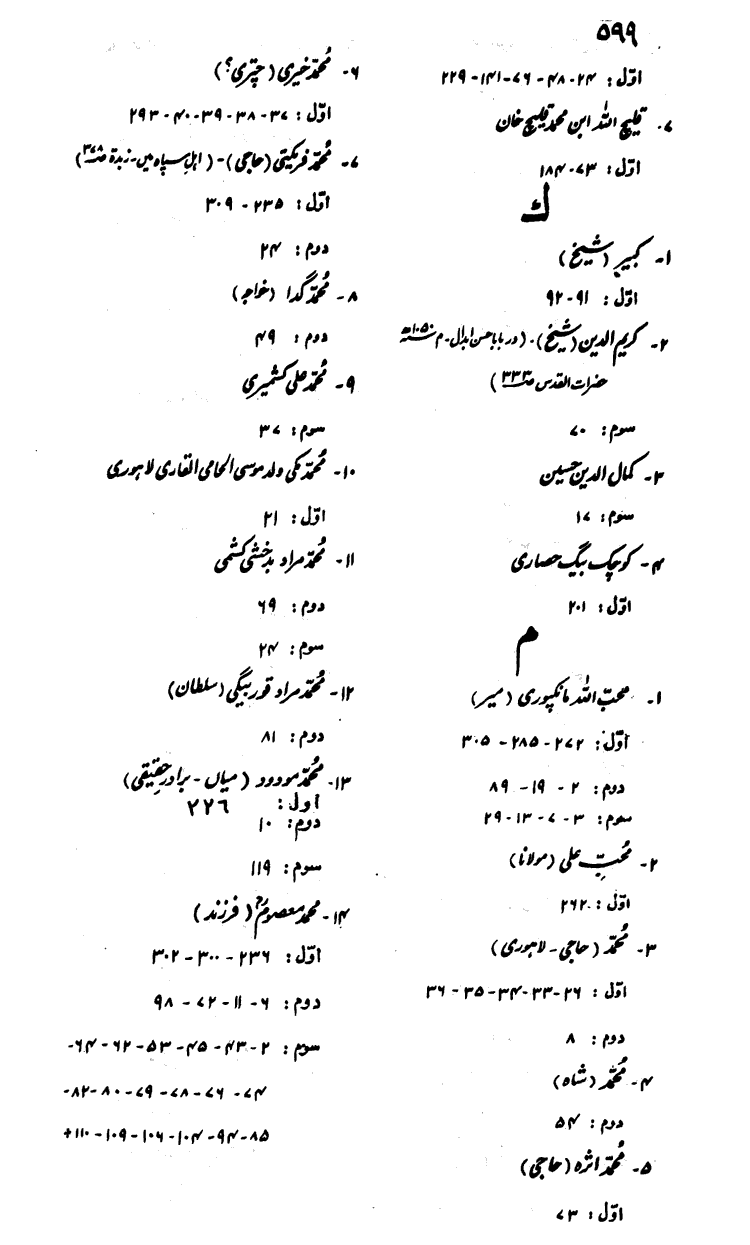 ۵۹۹
اوّل: ۲۴-۴۸-۷۶-۱۴۱-۲۲۹
۷- قلیچ اللہ ابن محمد قلیچ خان
اوّل: ۷۳-۱۸۴
ک
۱- کبیر (شیخ)
اوّل: ۹۱-۹۲
۲- کریم الدین (شیخ)-(در بابا حسن ابدال-م ۱۰۵۰ھ
حضرات القدس ص ۳۳۳)
سوم: ۷۰
۳- کمال الدین حسین
سوم: ۱۷
۴- کوچک بیگ حصاری
اوّل: ۲۰۱
م
۱- محبّ اللہ مانکپوری (میر)
اوّل: ۲۷۲-۲۸۵-۳۰۵
دوم: ۲-۱۹-۸۹
سوم: ۳-۷-۱۳-۲۹
۲- مُحبِّ علی (مولانا)
اوّل: ۲۶۲
۳- مُحمّد (حاجی-لاہوری)
اوّل: ۲۶-۳۳-۳۴-۳۵-۳۶
دوم: ۸
۴- مُحمّد (شاہ)
دوم: ۵۴
۵- مُحمّد اثرہ (حاجی)
اوّل: ۷۳
۶- مُحمّد خیری (چتری؟)
اوّل: ۳۷-۳۸-۳۹-۴۰-۲۹۳
۷- مُحمّد فرکیتی (حاجی)-(اہلِ سپاہ میں-زبدۃ ص ۳۷۸)
اوّل: ۲۳۵-۳۰۹
دوم: ۲۴
۸- مُحمّد گدا (خواجہ)
دوم: ۴۹
۹- مُحمّد علی کشمیری
سوم: ۳۷
۱۰- مُحمّد مکی ولد موسیٰ الحامی القاری لاہوری
اوّل: ۲۱
۱۱- مُحمّد مراد بدخشی کشمی
دوم: ۶۹
سوم: ۲۴
۱۲- مُحمّد مراد قوربیگی (سلطان)
دوم: ۸۱
۱۳- مُحمّد مودود (میاں-برادرِ حقیقی)
اول: ۲۲٦
دوم: ۱۰
سوم: ۱۱۹
۱۴- محمد معصومؒ (فرزند)
اوّل: ۲۳۶-۳۰۰-۳۰۲
دوم: ۶-۱۱-۷۲-۹۸
سوم: ۲-۴۳-۴۵-۵۳-۶۲-۶۴-
۷۴-۷۶-۷۸-۷۹-۸۰-۸۲-
۸۵-۹۴-۱۰۴-۱۰۶-۱۰۹-۱۱۰+